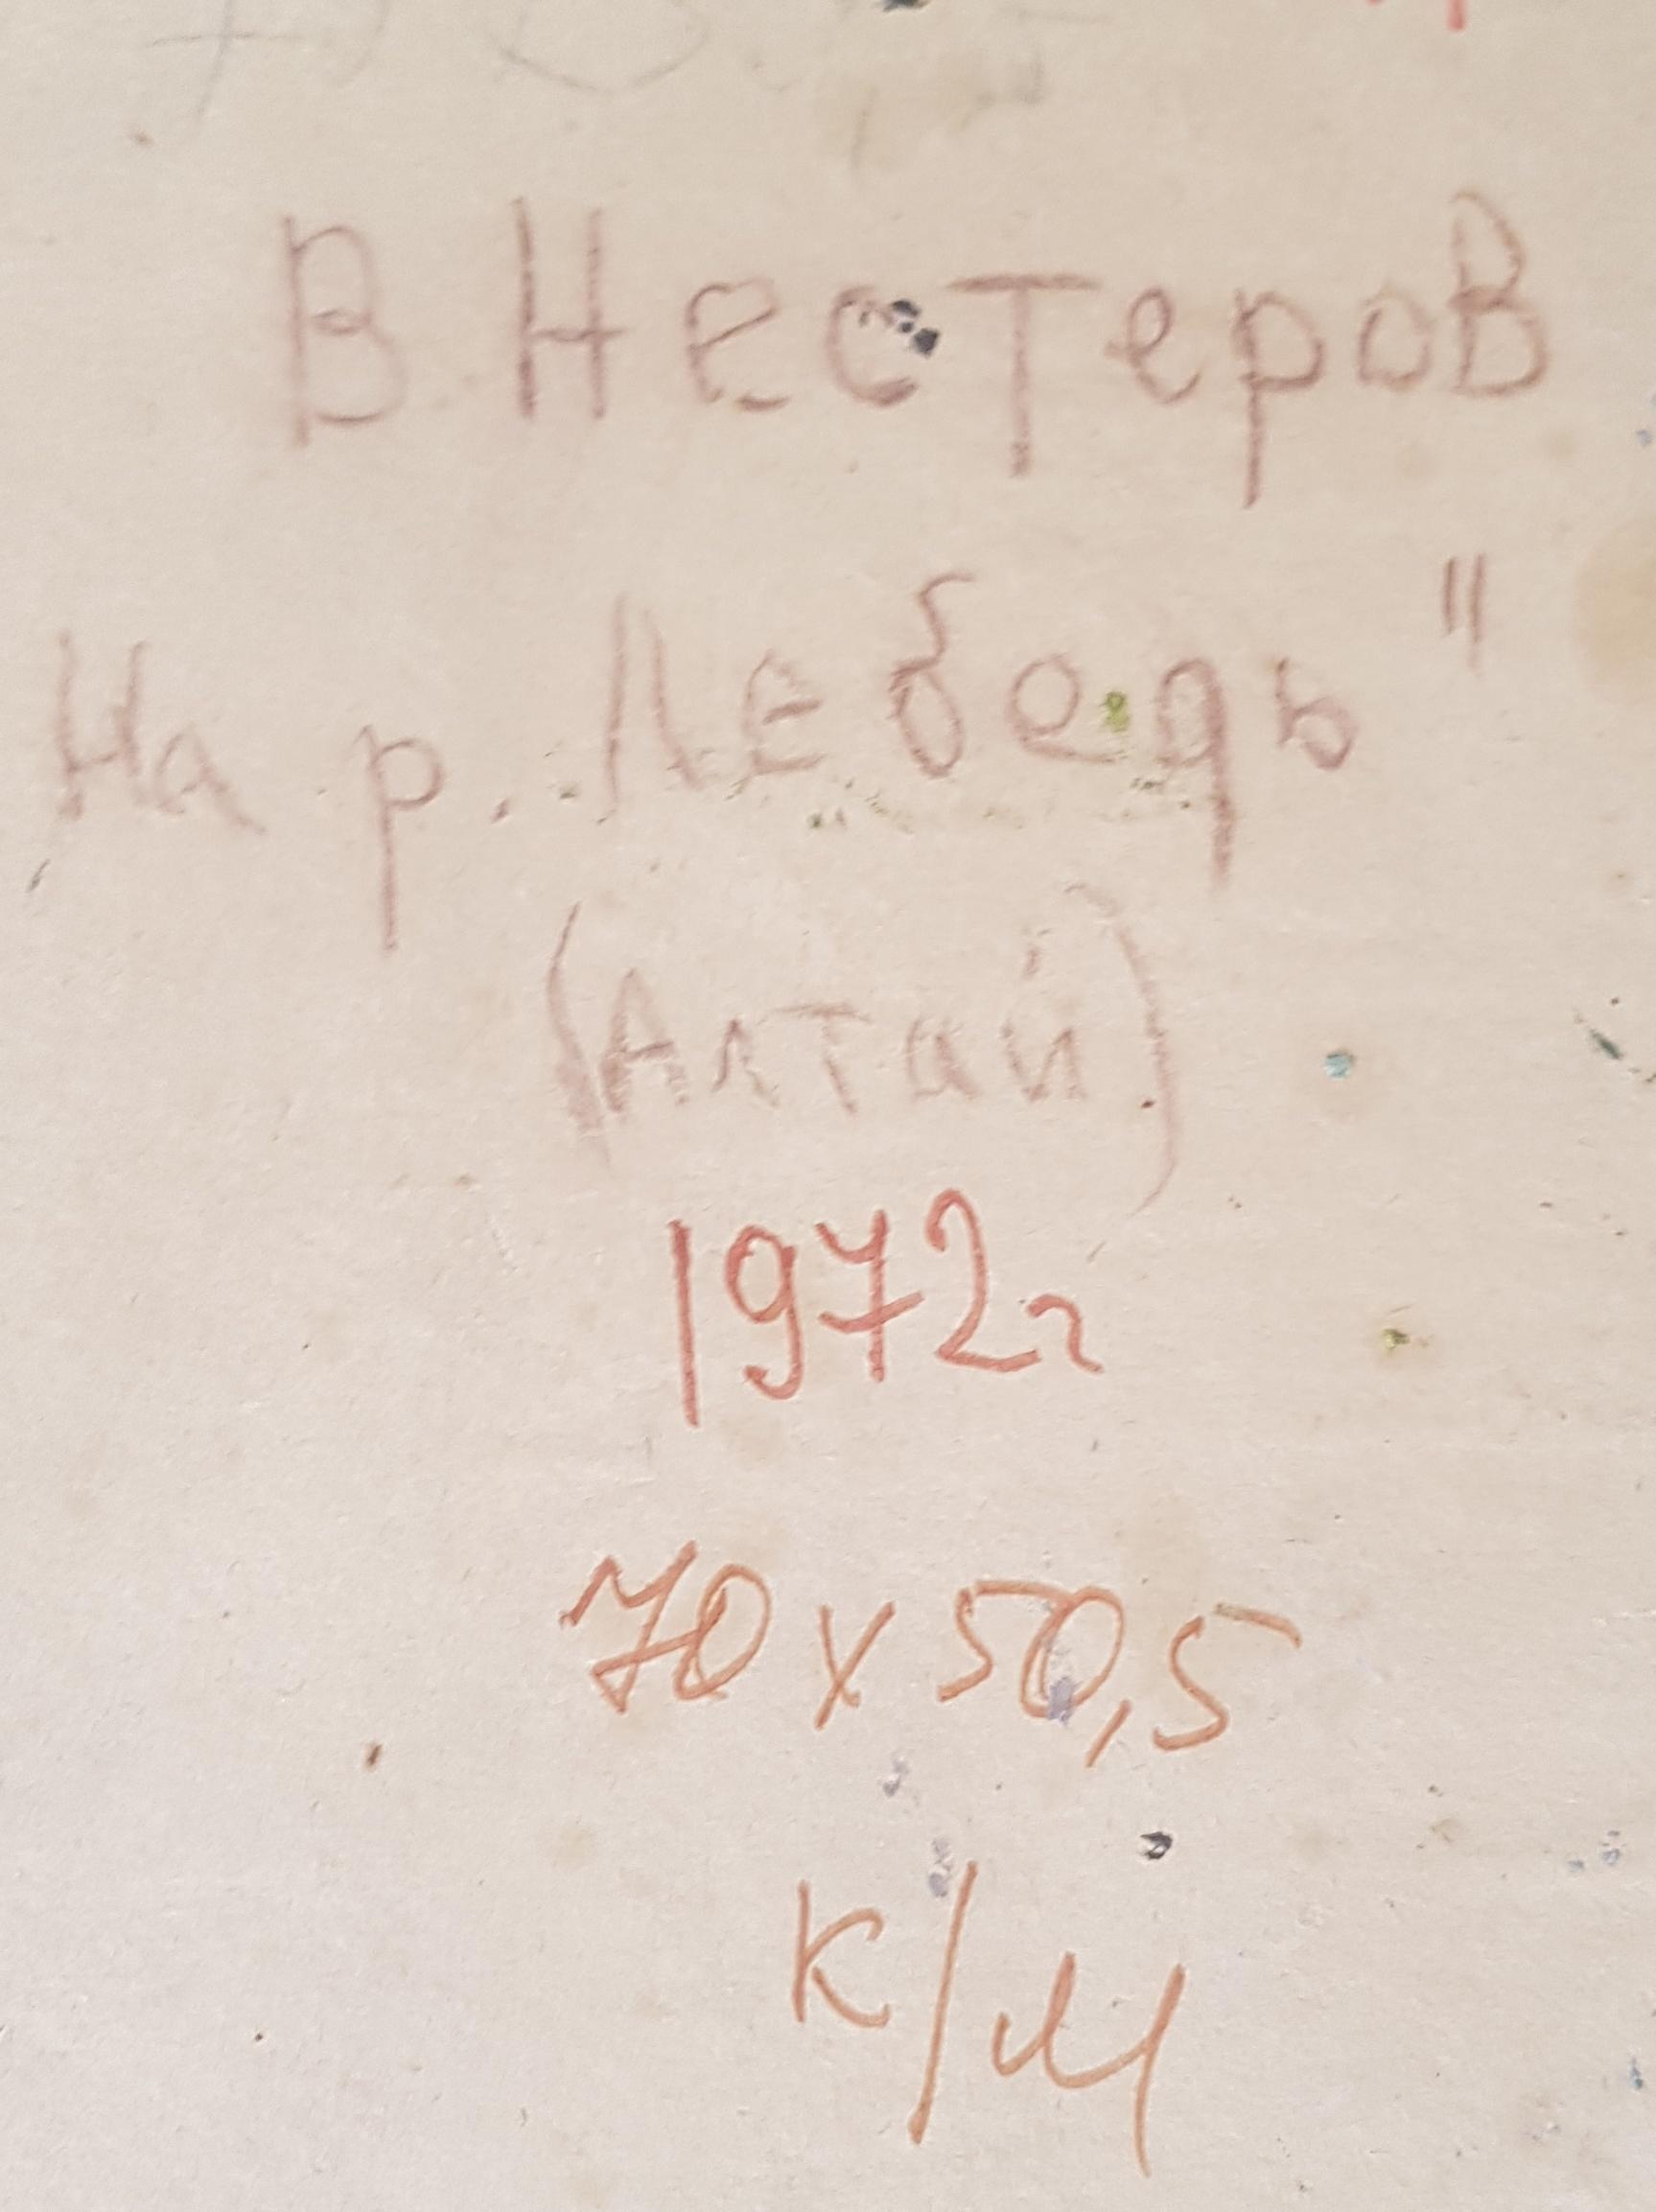 В. Нестеров
На р. Лебедь"
(Алтай)
1972г
70х50,5
К/М